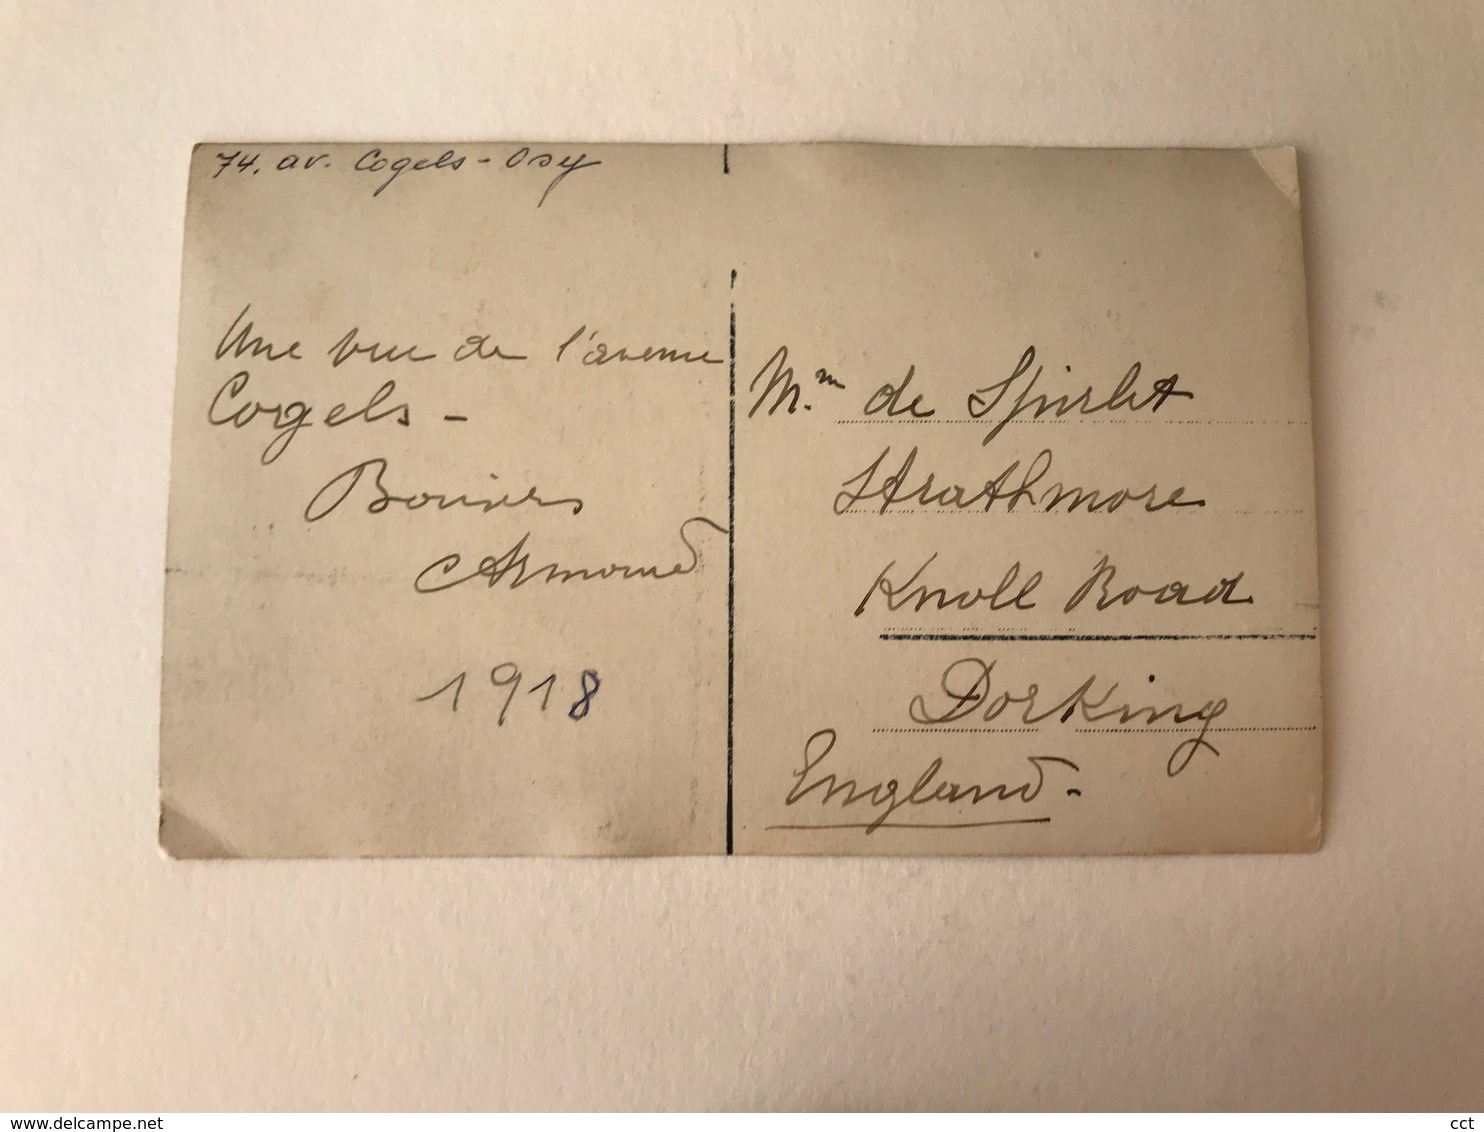 74. av. Cogels - Osy
Une vue de l'avenue
Cogels -
Armand
1918
M.m de Spirlet
Strathmore
Knoll Road
Dorking
England -
www.delcampe.net
cct